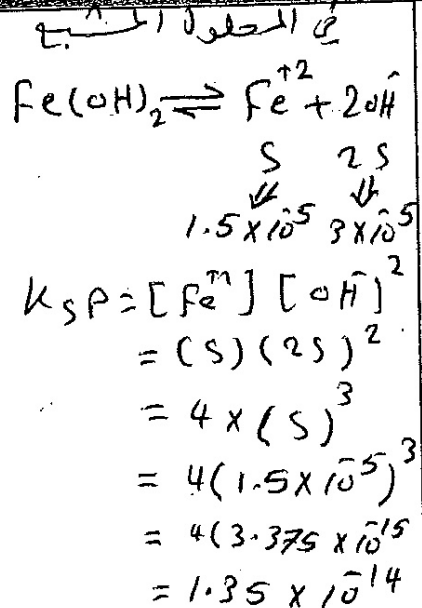 في المحلول المشبع
Fe(OH)₂ ⇌ Fe⁺² + 2OH⁻
S 2S
⇓ ⇓
1.5×10⁻⁵ 3×10⁻⁵
KsP = [Fe⁺²] [OH⁻]²
= (S)(2S)²
= 4×(S)³
= 4(1.5×10⁻⁵)³
= 4(3.375×10⁻¹⁵
= 1.35×10⁻¹⁴